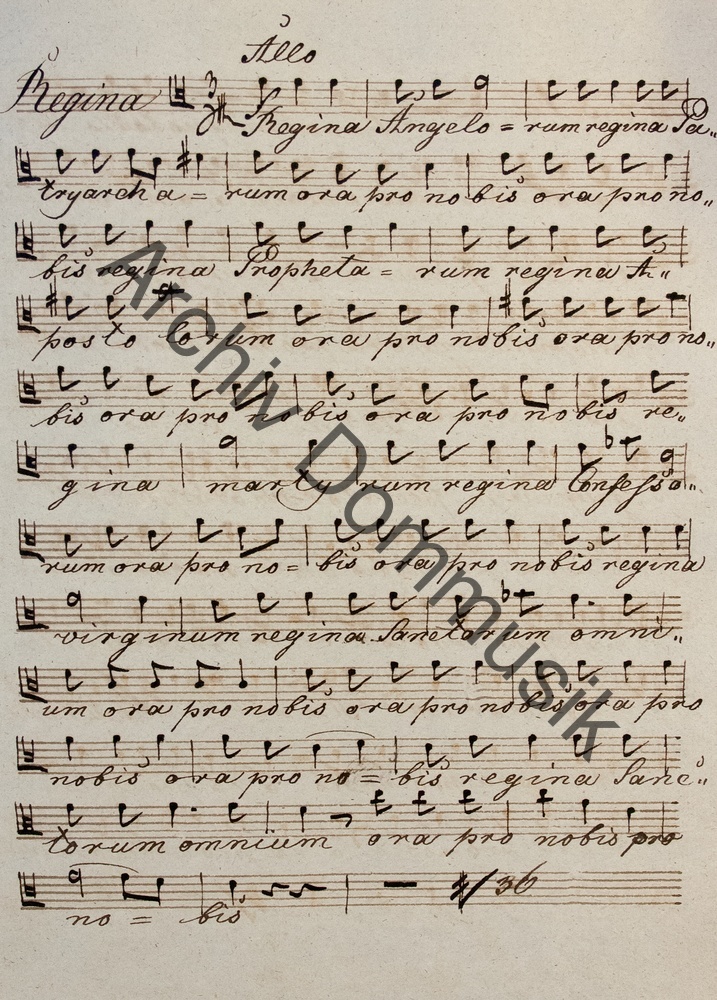 Allo
Regina
Regina Angelo = rum regina Pa„
tryarch a = rum ora pro nobis ora pro no„
bis regina Propheta = rum regina A„
posto lorum ora pro nobis ora pro no„
bis ora pro nobis ora pro nobis re„
gina marty rum regina Confesso„
rum ora pro no = bis ora pro nobis regina
virginum regina Sanctorum omni„
um ora pro nobis ora pro nobis ora pro
nobis ora pro no = bis regina Sanc„
torum omnium ora pro nobis pro
no = bis
36
Archiv Dommusik